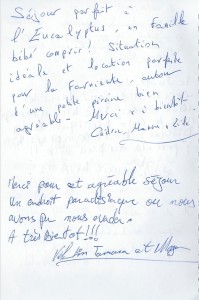 Séjour parfait à
l'Eucalyptus, en famille
bébé compris! Situation
idéale et location parfaite
pour le farniente, autour
d'une petite piscine bien
agréable. Merci & à bientôt
Merci pour cet agréable séjour
Un endroit paradisiaque ou nous
avons pu nous évader.
A très bientôt!!!
Tamara et